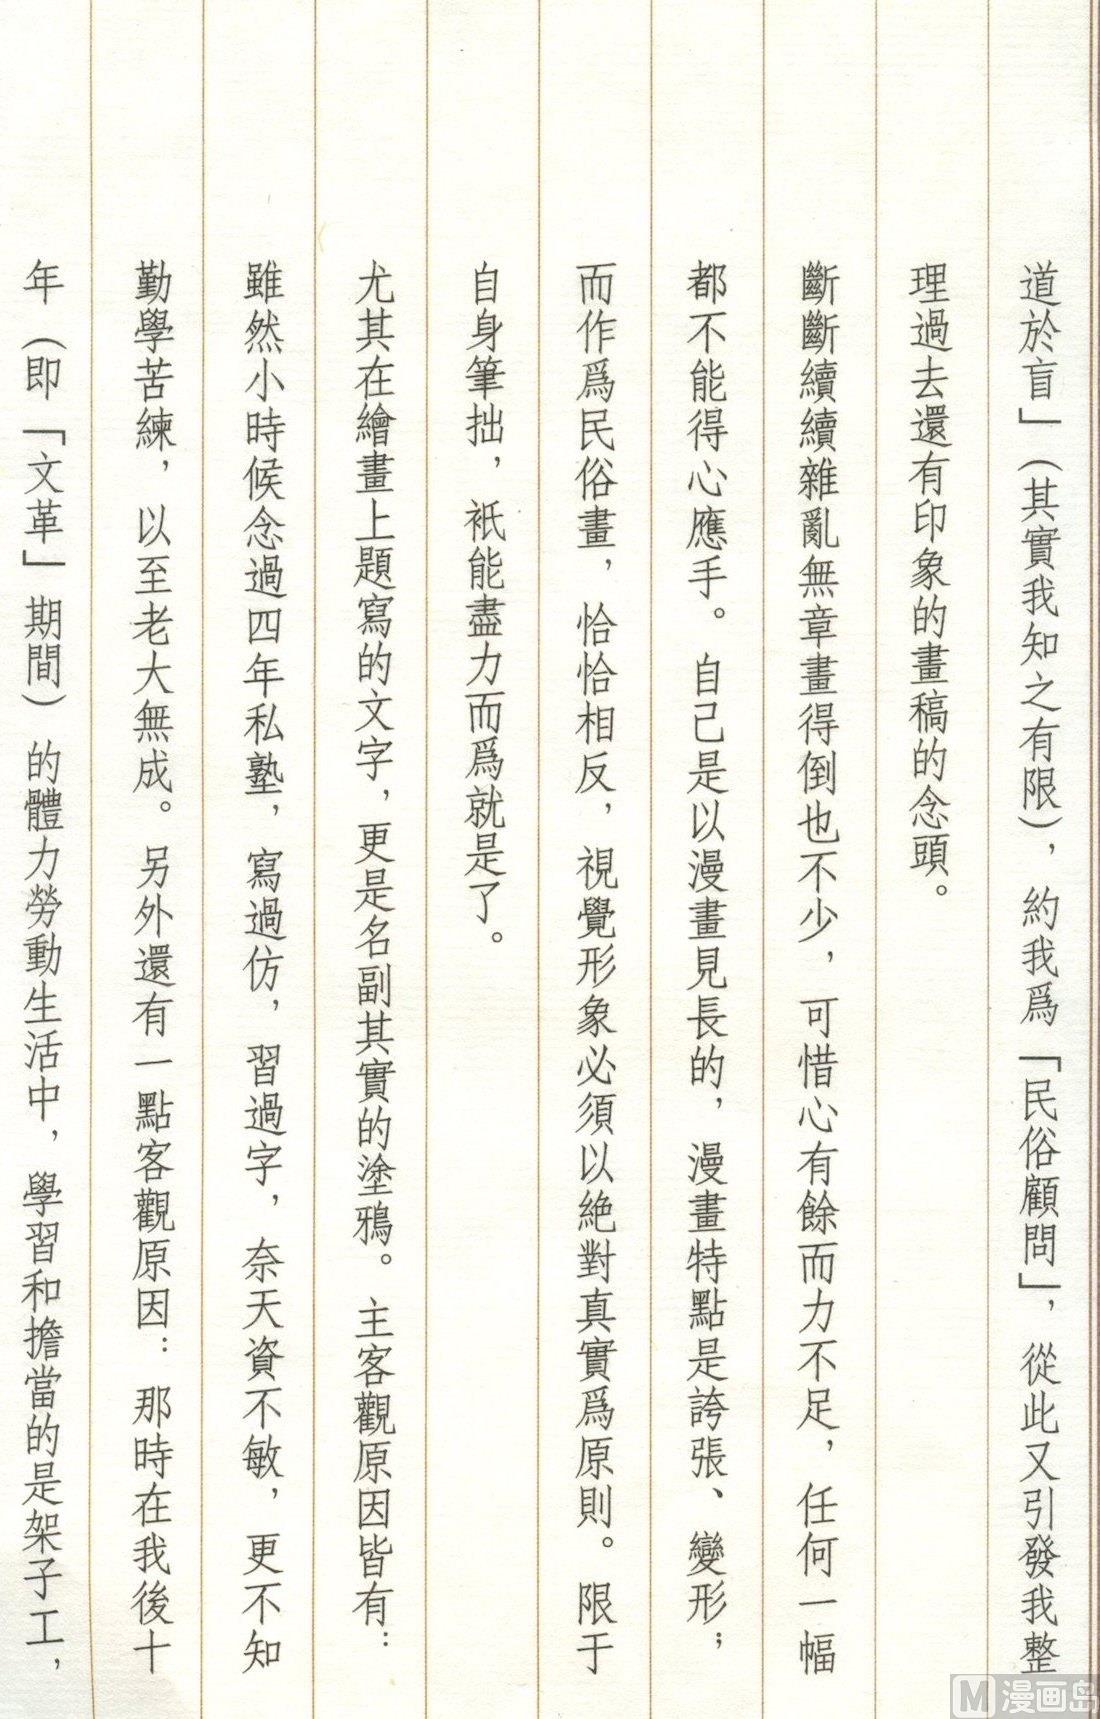 道於盲」（其實我知之有限），約我爲「民俗顧問」，從此又引發我整
理過去還有印象的畫稿的念頭。
斷斷續續雜亂無章畫得倒也不少，可惜心有餘而力不足，任何一幅
都不能得心應手。自己是以漫畫見長的，漫畫特點是誇張、變形；
而作爲民俗畫，恰恰相反，視覺形象必須以絶對真實爲原則。限于
自身筆拙，衹能盡力而爲就是了。
尤其在繪畫上題寫的文字，更是名副其實的塗鴉。主客觀原因皆有：
雖然小時候念過四年私塾，寫過仿，習過字，奈天資不敏，更不知
勤學苦練，以至老大無成。另外還有一點客觀原因：那時在我後十
年（即「文革」期間）的體力勞動生活中，學習和擔當的是架子工，
漫画岛